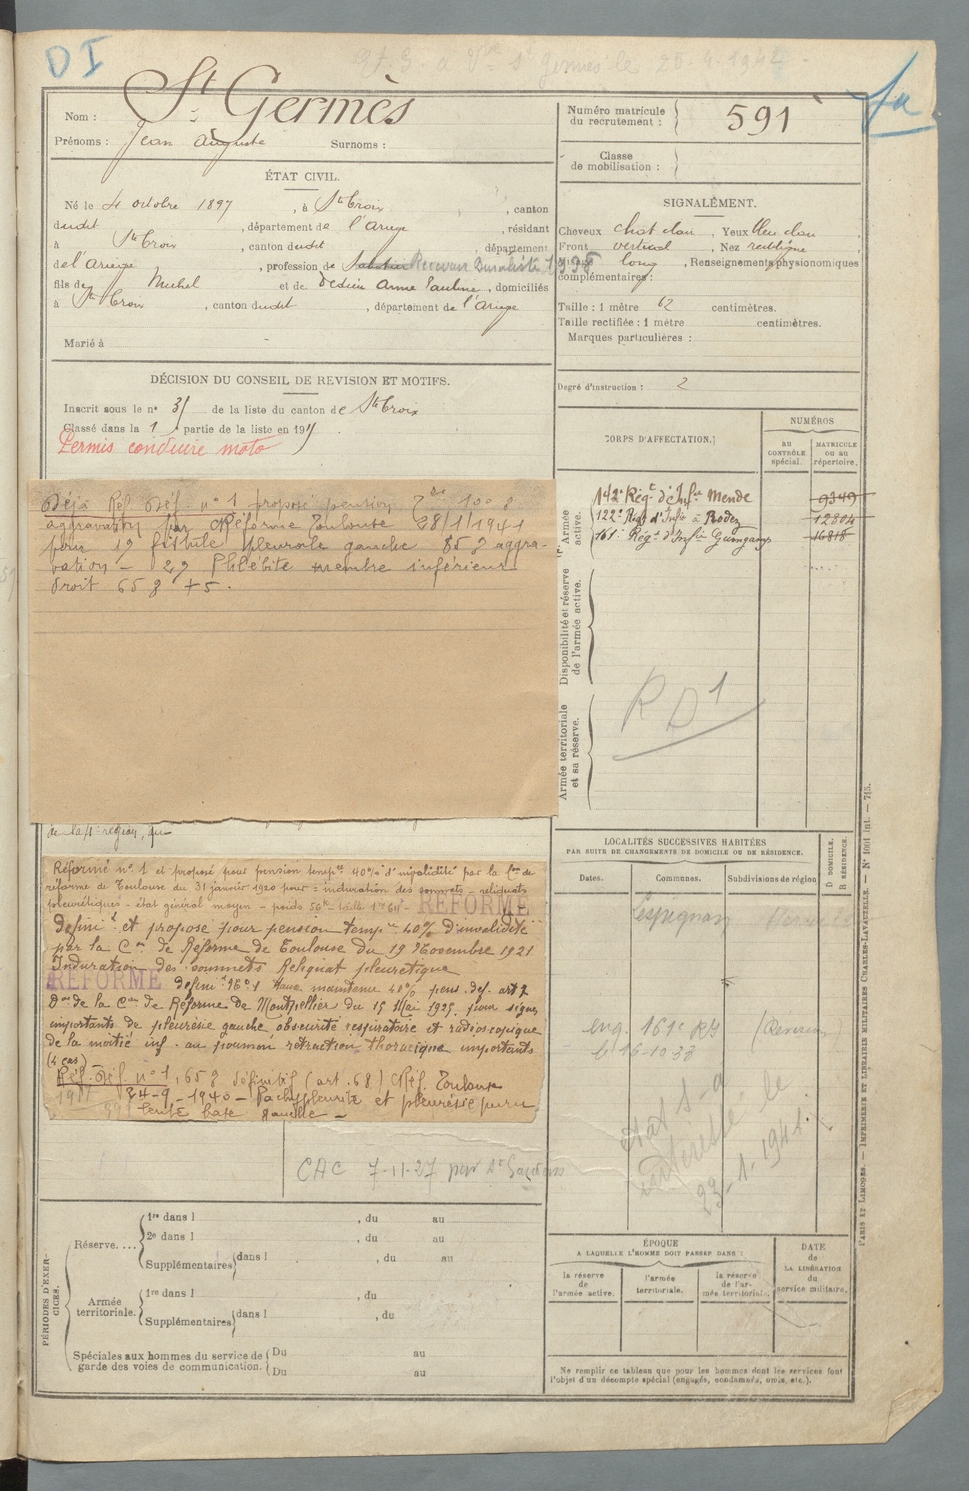 D I
le 25-4-1942
Nom : St Germès
Prénoms : Jean Auguste Surnoms :
ÉTAT CIVIL.
Né le 4 octobre 1897, à Ste Croix, canton
dudit, département de l'Ariège, résidant
à Ste Croix, canton dudit, département
de l'Ariège, profession de Receveur buraliste 1938
fils de Michel et de Anne Pauline, domiciliés
à Ste Croix, canton dudit, département de l'Ariège
Marié à
DÉCISION DU CONSEIL DE REVISION ET MOTIFS.
Inscrit sous le n° 31 de la liste du canton de Ste Croix
Classé dans la 1 partie de la liste en 191
Permis conduire moto
Déjà Réf. Déf. n° 1 proposé pension 100 %
aggravation par Réforme Toulouse 28/1/1941
pour 1° fistule pleurale gauche 85 % aggra-
vation – 2° Phlébite membre inférieur
droit 65 % + 5.
de la région, du
Réformé n° 1 et proposé pour pension temp re 40 % d'invalidité par la Con de
réforme de Toulouse du 31 janvier 1920 pour = induration des sommets – reliquats
pleurétiques – état général moyen – poids 56 k – taille
RÉFORME
Définit et proposé pour pension temp re 40 % d'invalidité
par la Con de Réforme de Toulouse du 19 Novembre 1921
Induration des sommets Reliquat pleurétique
RÉFORME
défini t N° 1 Taux maintenu 40 % pens. déf. art 7
Don de la Con de Réforme de Montpellier du 15 Mai 1925 pour signes
importants de pleurésie gauche obscurité respiratoire et radioscopique
de la moitié inf. du poumon rétraction thoracique importants
Réf. Déf. n° 1, 65 % définitif (art. 68) Réf. Toulouse
24-9-1940 – Pachypleurite et pleurésie puru
lente base gauche –
CAC 7-11-27 par St Gaudens
PÉRIODES D'EXER-
CICES.
Réserve....
1re dans l , du au
2e dans l , du au
Supplémentaires dans l , du au
Armée
territoriale.
1re dans l , du
Supplémentaires dans l , du
Spéciales aux hommes du service de
garde des voies de communication.
Du au
Du au
Numéro matricule
du recrutement : 591
Classe
de mobilisation :
SIGNALÉMENT.
Cheveux chat clair, Yeux bleu clair
Front vertical, Nez rectiligne
Visage long, Renseignements physionomiques
complémentaires :
Taille : 1 mètre 62 centimètres.
Taille rectifiée : 1 mètre centimètres.
Marques particulières :
Degré d'instruction : 2
CORPS D'AFFECTATION.
NUMÉROS
au
CONTRÔLE
spécial.
MATRICULE
OU AU
répertoire.
Armée
active.
142e Régt d'Infie Mende 9349
122e Régt d'Infie à Rodez 12804
161e Régt d'Infie Guingamp 16818
Disponibilité et réserve
de l'armée active.
Armée territoriale
et sa réserve.
R D 1
LOCALITÉS SUCCESSIVES HABITÉES
PAR SUITE DE CHANGEMENTS DE DOMICILE OU DE RÉSIDENCE.
Dates.
Communes.
Subdivisions de région
D DOMICILE.
R RÉSIDENCE.
Lespignan
161e
le 16-10-33
23-1-1941
ÉPOQUE
A LAQUELLE L'HOMME DOIT PASSER DANS :
la réserve
de
l'armée active.
l'armée
territoriale.
la réserve
de l'ar-
mée territoriale.
DATE
de
LA LIBÉRATION
du
service militaire.
Ne remplir ce tableau que pour les hommes dont les services font
l'objet d'un décompte spécial (engagés, condamnés, omis, etc.).
PARIS ET LIMOGES. — IMPRIMERIE ET LIBRAIRIE MILITAIRES CHARLES-LAVAUZELLE. — N° 1001 Int. — 715.